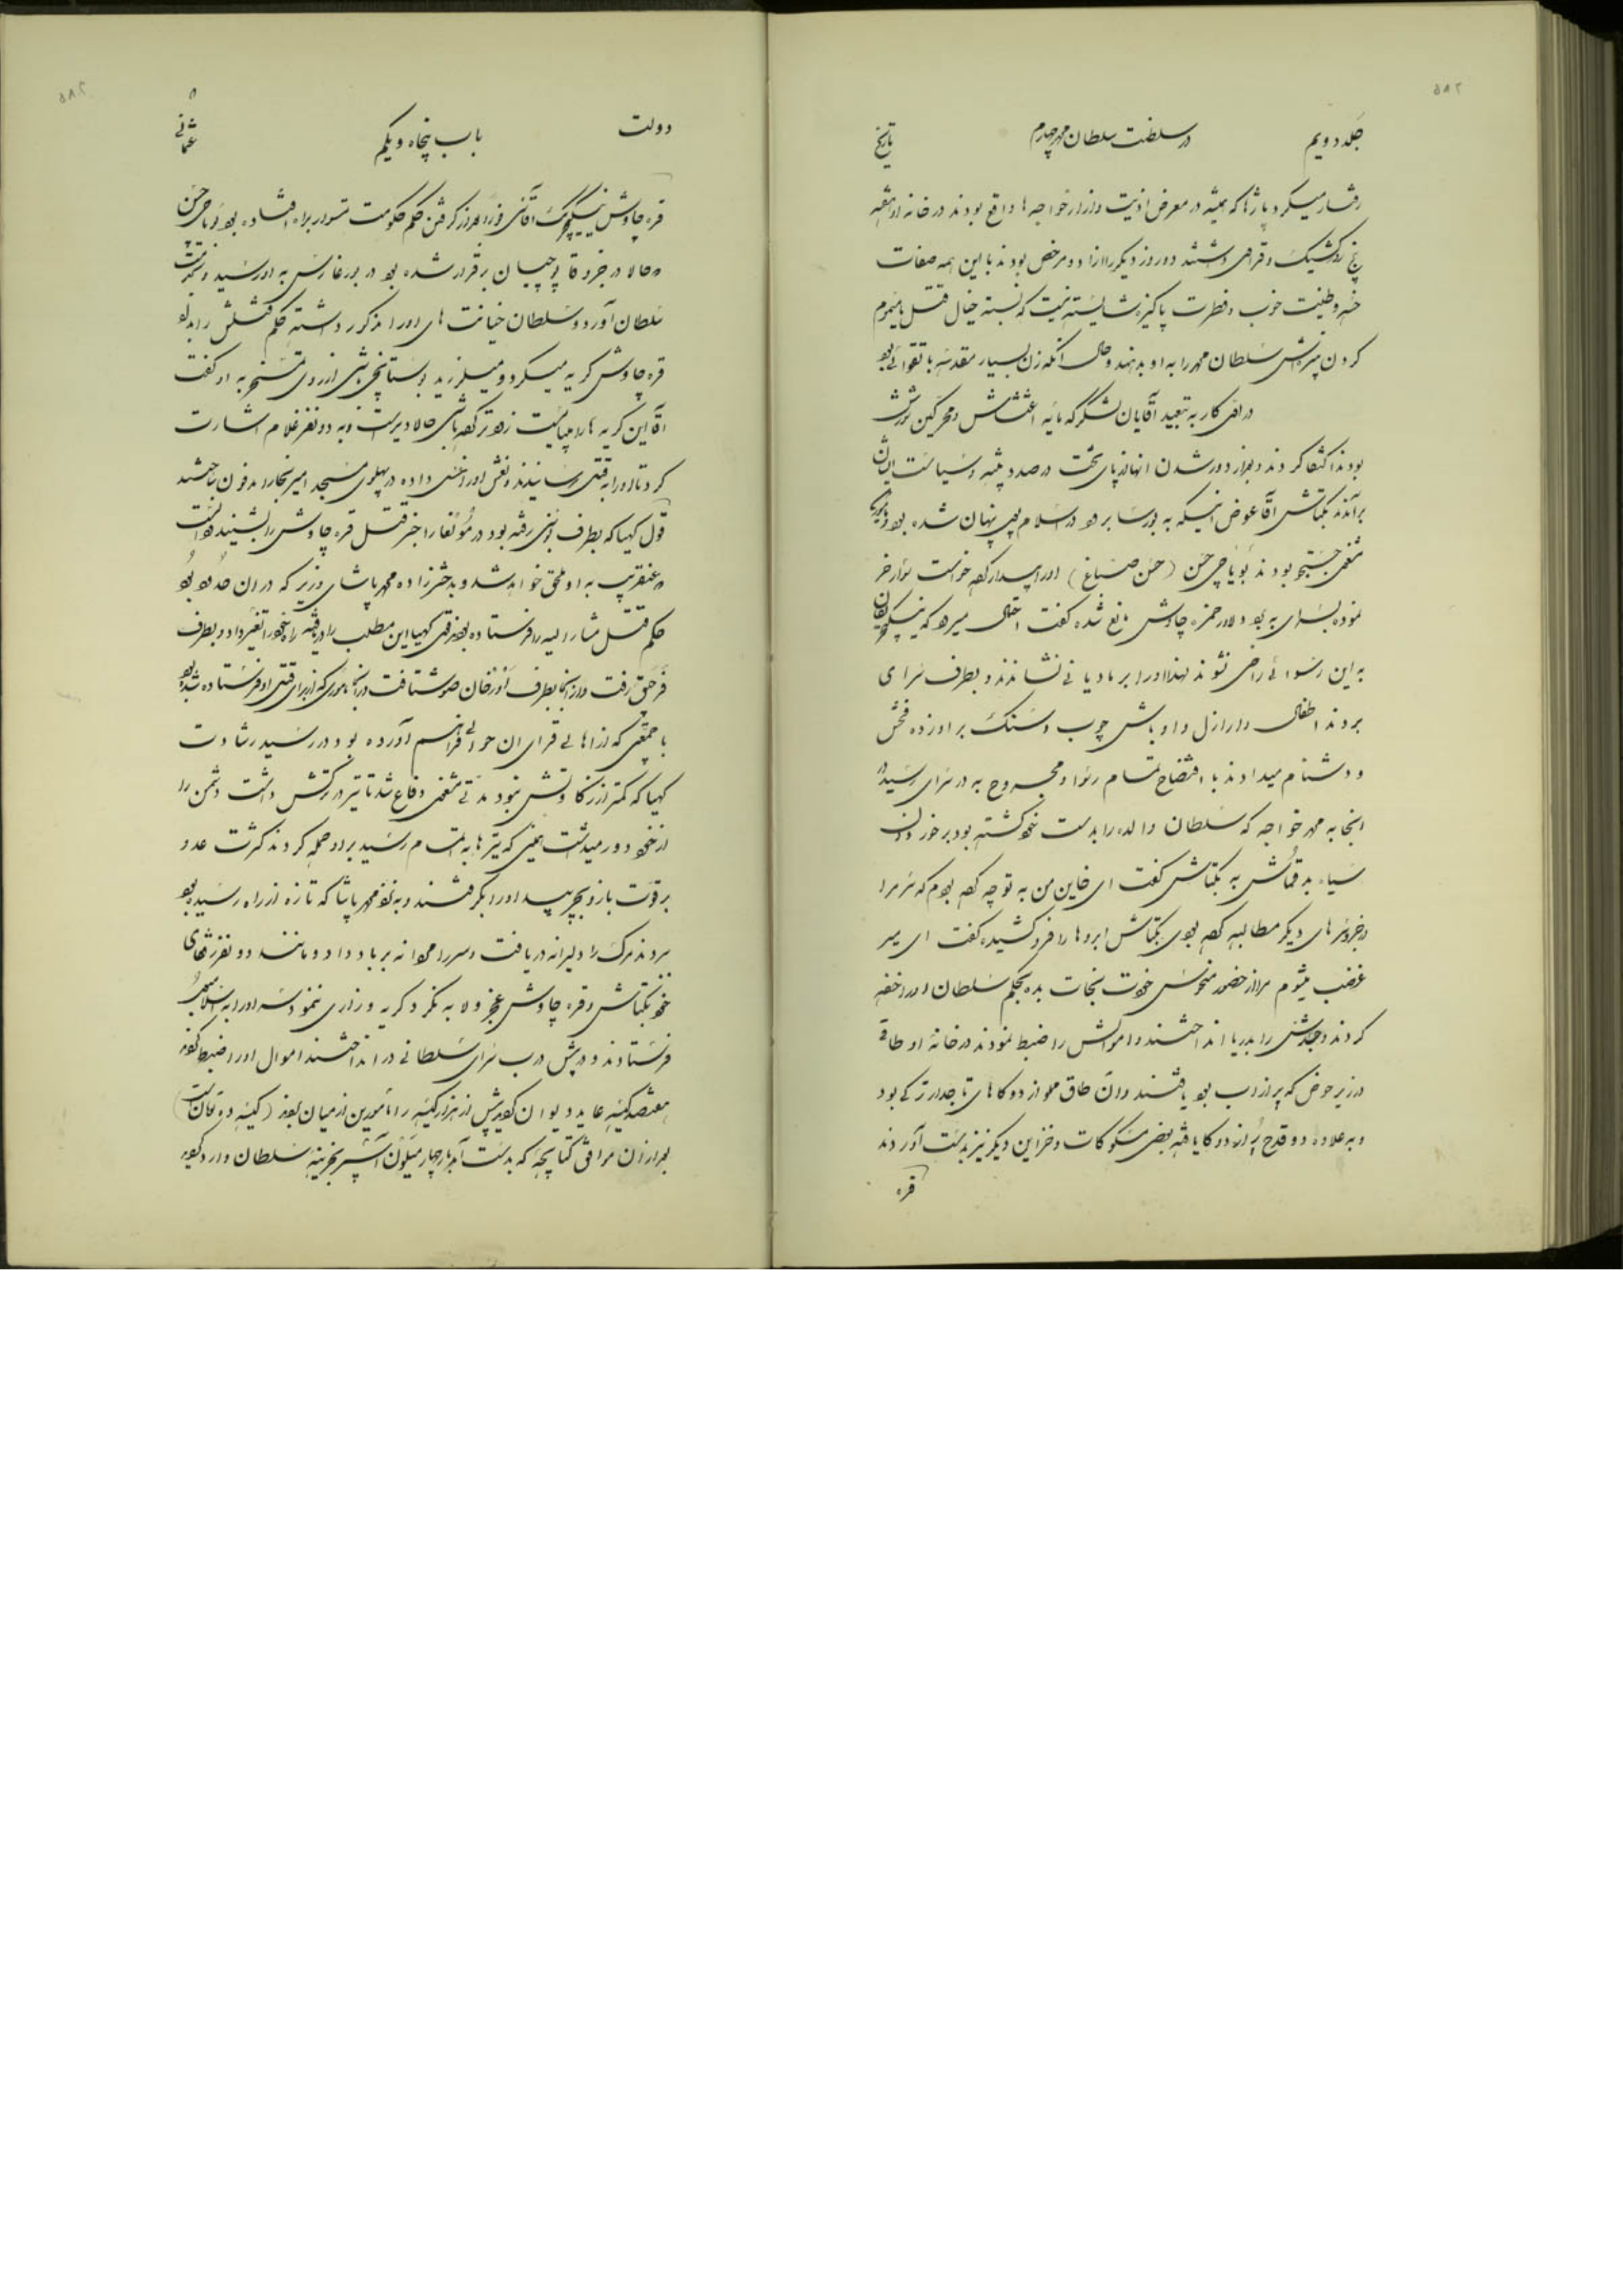 ۵۸۲
جلد دویم
در سلطنت سلطان محمد چهارم
تاریخ
رفتار میکرد پاژها که همیشه در معرض اذیت و ازار خواجه ها واقع بودند در خانه او هفته
پنج روز کشیک و قراولی داشتند دو روز دیگر را ازاد و مرخص بودند با این همه صفات
حسنه و طینت خوب و فطرت پاکیزه شایسته نیست که نسبت خیال قتل یا مسموم
کردن پسرش سلطان محمد را به او بدهند و حال آنکه زن بسیار مقدسه با تقوائی بود
در اول کار به تبعید آقایان لشگر که مایه اغتشاش و محرکین شورش
بودند اکتفا کردند و بعد از دور شدن انها از پای تخت درصدد تنبیه و سیاست ایشان
برآمدند بکتاش آقا عوض اینکه به بورسا برود در اسلامبول پنهان شده بود
شخصی جستجو بودند بویاجی حسن (حسن صباغ) اورا پیدا کرده خواست سوار خر
نموده بسرای ببرد دلاور حمزه چاوش مانع شده گفت احتمال میرود که ینگیچریان
به این رسوائی راضی نشوند لهذا اورا بر مادیانی نشاندند و بطرف سرای
بردند اطفال و ارازل و اوباش چوب و سنگ بر او زده فحش
و دشنام میدادند با افتضاح تمام رسوا و مجروح به در سرای رسید در
انجا به محمد خواجه که سلطان والده را بدست خود کشته بود برخورد ان
سیاه بد قماش به بکتاش گفت ای خاین من به تو چه کرده بودم که سر مرا
در جزو سرهای دیگر مطالبه کرده بودی بکتاش ابروها را فرو کشیده گفت ای میر
غضب میشوم مرا از حضور منحوس خودت نجات بده بحکم سلطان اورا خفه
کردند و جسدش را بدریا انداختند و اموالش را ضبط نمودند در خانه او طاقی
در زیر حوض که پر از اب بود یافتند و ان طاق مملو از دوکاهای تاجدار ترکی بود
و به علاوه دو قدح پر از دوکا یافته بعضی مسکوکات و خزاین دیگر نیز بدست آوردند
قره
دولت
باب پنجاه و یکم
عثمانی
قره چاوش ینگیچری آقاسی روز بعد از گرفتن حکم حکومت تمسوار براه افتاده بود بویاجی حسن
که حالا در جزو قاپوچیان برقرار شده بود در بورغازس به او رسید و بخدمت
سلطان آورد و سلطان خیانت های اورا مذکور داشته حکم قتلش را بداد
قره چاوش گریه میکرد و میلرزید بوستانچی باشی از روی تمسخر به او گفت
آقا این گریه ها را میبایست زودتر کرده باشی حالا دیر است و به دو نفر غلام اشارت
کرد تا اورا بقتل رسانیدند و نعش اورا غسل داده در پهلوی مسجد امیر بخارا مدفون ساختند
قول کهیا که بطرف بوسنی رفته بود در مؤنفا را خبر قتل قره چاوش را بشنید و دانست
که عنقریب به او ملحق خواهد شد و بدخترزاده محمد پاشای وزیر که در ان حدود بود
حکم قتل مشار الیه را فرستاده بودند وقتی کهیا این مطلب را دریافته راه خود را تغییر داد و بطرف
فرجق رفت و از انجا بطرف اوزخان صو شتافت در انجا ماموری که از برای قتل او فرستاده شده بود
با جمعی که از اهالی قرای ان حوالی فراهم آورده بود در رسید رشادت
کهیا که کمتر از رفقاوتش نبود مدتی مشغول دفاع شد تا تیر در ترکش داشت دشمن را
از خود دور میداشت همین که تیرها به اتمام رسید بر او حمله کردند کثرت عدد
بر قوت بازو بچربید اورا بگرفتند و به نزد محمد پاشا که تازه از راه رسیده بود
بردند مرگ را دلیرانه دریافت و سر را مردانه بر باد داد و مانند دو نفر رفقای
خود بکتاش و قره چاوش عجز و لابه نکرد و گریه و زاری ننمود سر اورا به اسلامبول
فرستادند و در پیش درب سرای سلطانی در انداختند اموال اورا ضبط کرده
هفتصد کیسه عاید دیوان گردید بیش از هزار کیسه را مأمورین از میان بردند
بعد از ان موافق کتابچه که بدست آمد باز چهار میلیون آسپر بخزینه سلطان وارد گردید